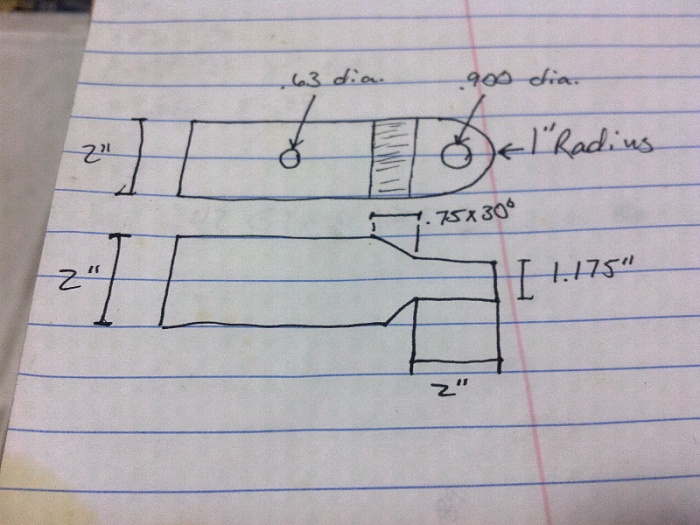 .63 dia.
.900 dia.
2"
1" Radius
.75 x 30°
2"
1.175"
2"